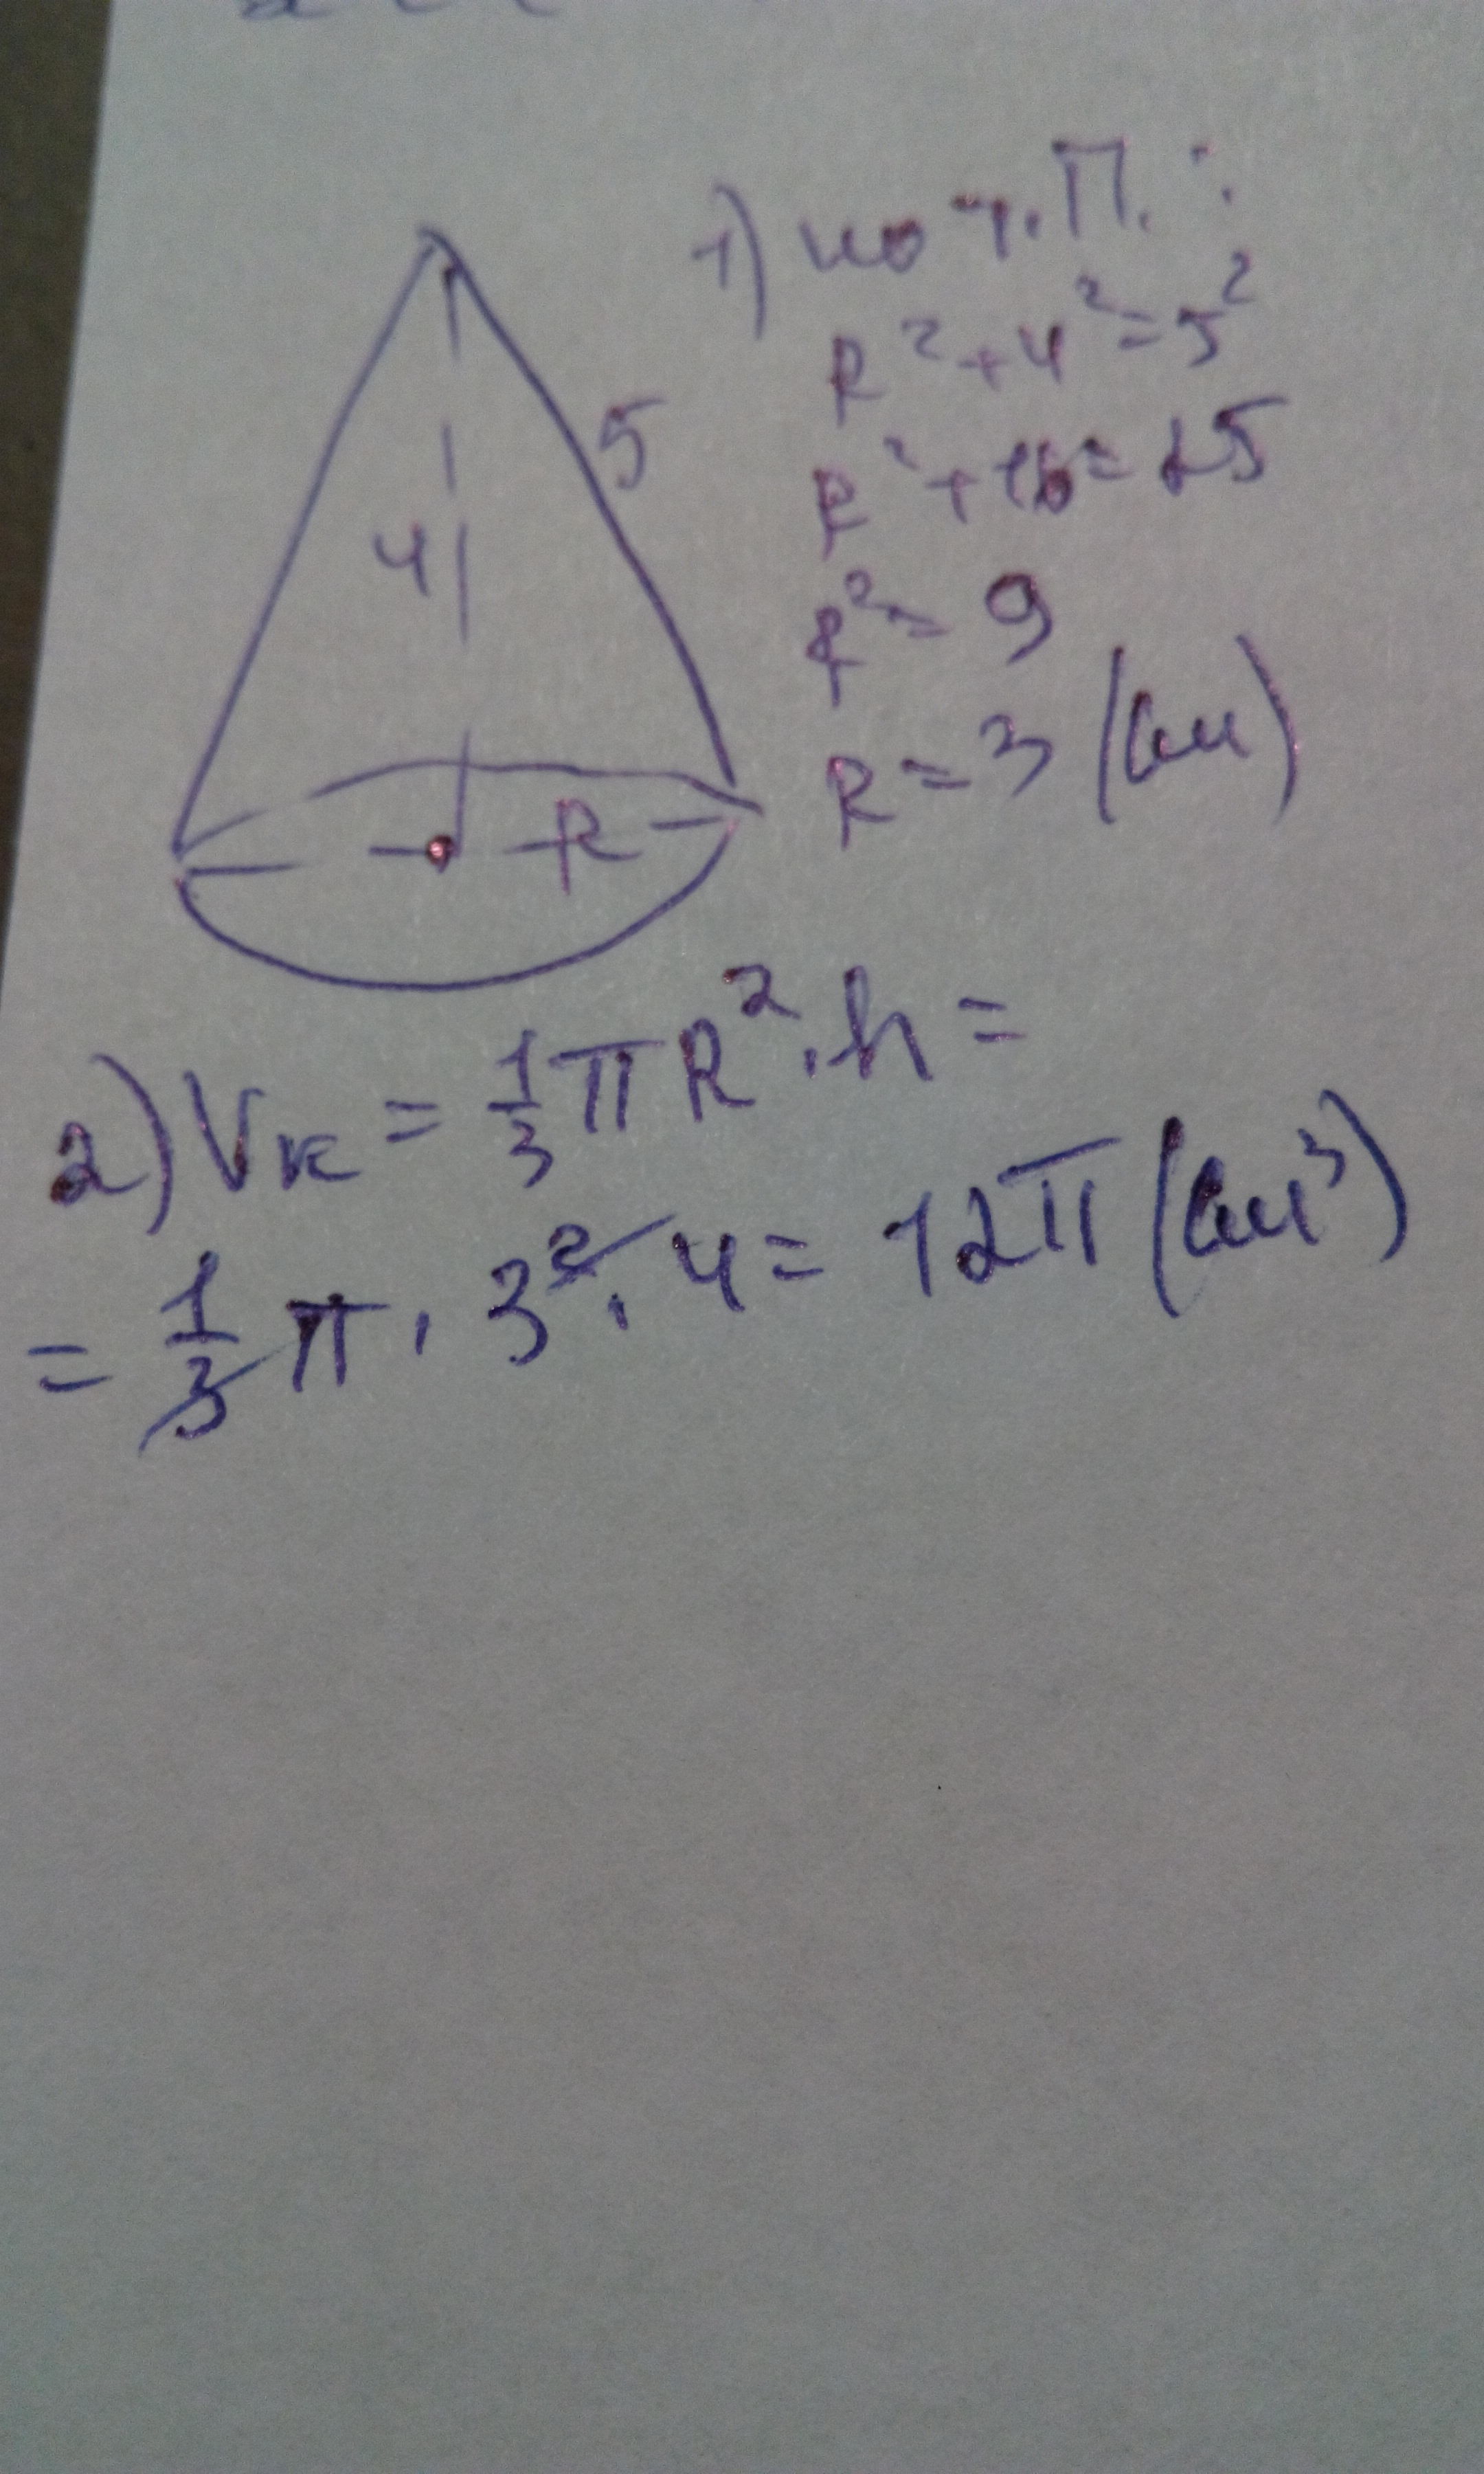 4
5
R
1) по т.П.:
R²+4²=5²
R²+16=25
R²=9
R=3 (см)
2) Vк = 1/3 πR²·h =
= 1/3 π · 3² · 4 = 12π (см³)